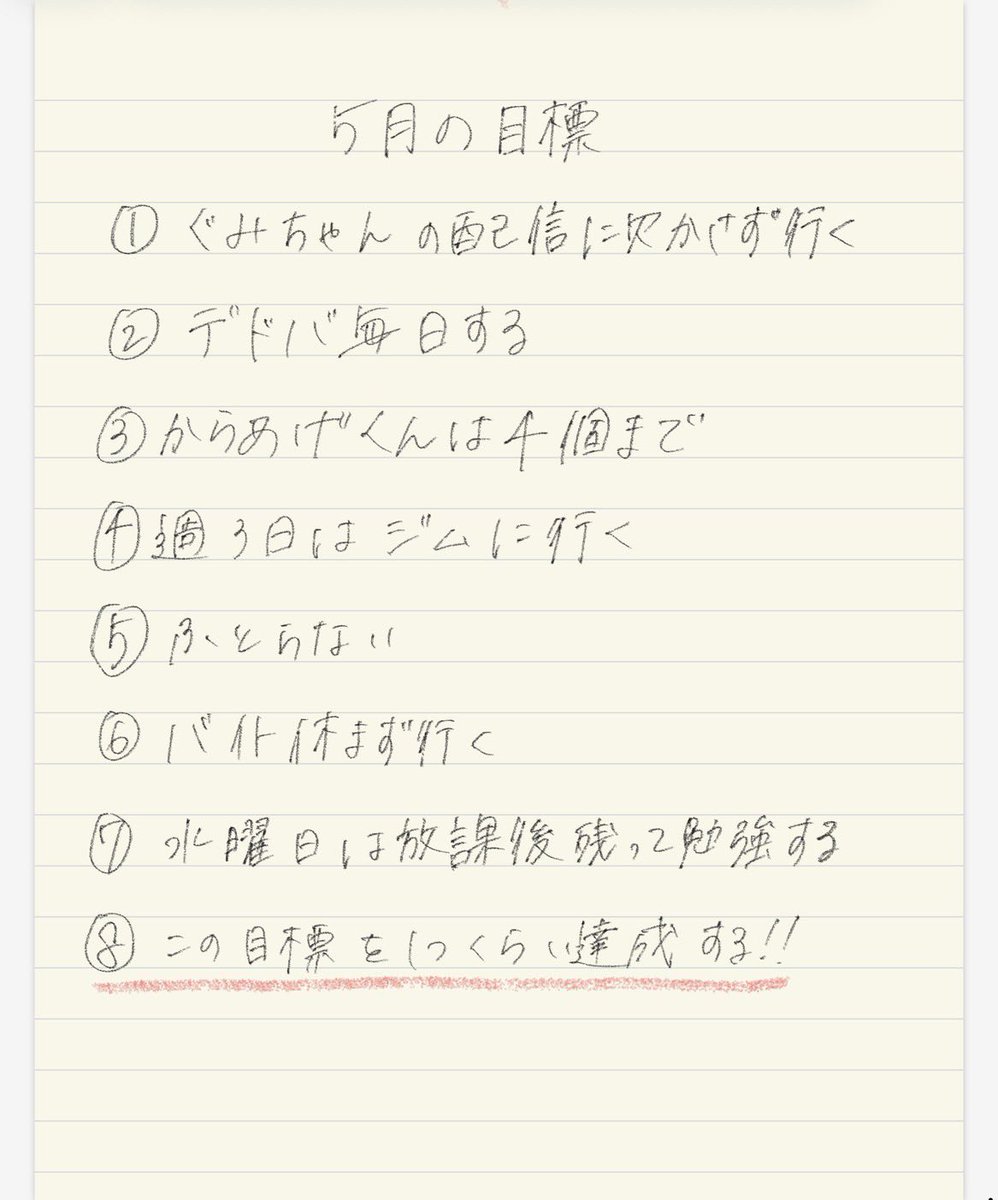 5月の目標
① ぐみちゃんの配信に欠かさず行く
② デドバ毎日する
③ からあげくんは4個まで
④ 週3日はジムに行く
⑤ ふとらない
⑥ バイト休まず行く
⑦ 水曜日は放課後残って勉強する
⑧ この目標を1つくらい達成する!!